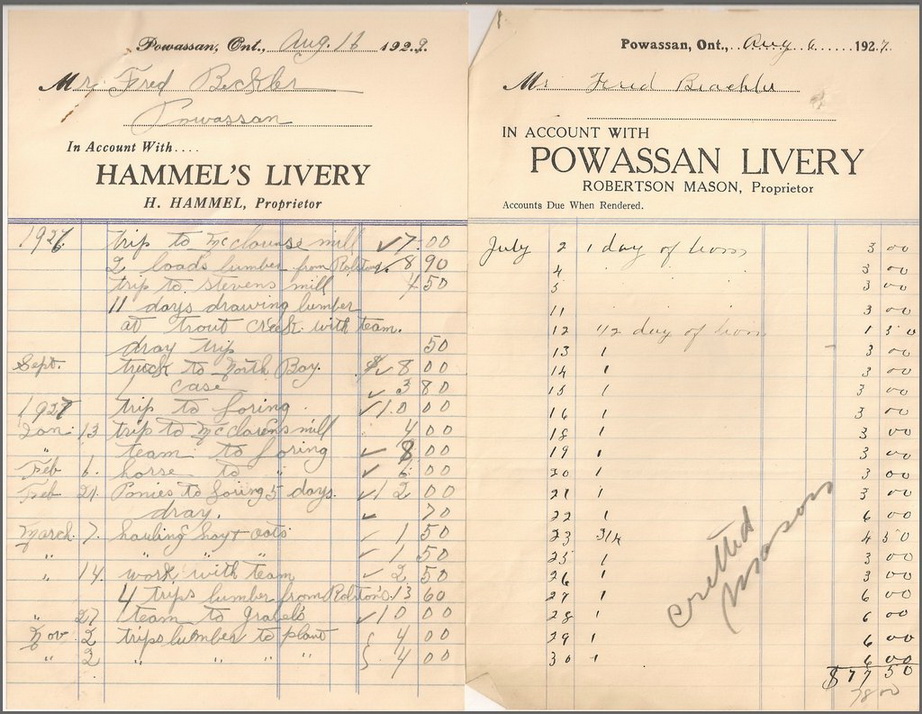 Powassan, Ont., Aug. 16 1929.
Mr. Fred
Powassan
In Account With....
HAMMEL'S LIVERY
H. HAMMEL, Proprietor
1926 trip to mill ✓ 7.00
2 loads lumber from Rolston's. 8 90
trip to Stevens mill 4 50
11 days drawing lumber
at Trout Creek with team.
dray trip 50
Sept. truck to North Bay. $✓ 8 00
1 case ✓ 3 80
1927 trip to Loring ✓ 10 00
Jan. 13 trip to McClarens mill 4 00
" team to Loring ✓ 8 00
Feb 6. horse to " ✓ 6 00
Feb 21 Ponies to Loring 5 days. ✓ 12 00
dray. ✓ 70
March 7. hauling hay + oats ✓ 1 50
" " " " ✓ 1 50
" 14 work with team ✓ 2 50
4 trips lumber from Rolston's. 13 60
" 27 team to ✓ 10 00
Nov 2 trips lumber to plant 4 00
" 2 " " " " 4 00
Powassan, Ont., Aug 6 1927.
Mr Fred
IN ACCOUNT WITH
POWASSAN LIVERY
ROBERTSON MASON, Proprietor
Accounts Due When Rendered.
July 2 1 day of team 3 00
4 3 00
5 3 00
11 3 00
12 1/2 day of team 1 50
13 1 3 00
14 1 3 00
15 1 3 00
16 1 3 00
18 1 3 00
19 1 3 00
20 1 3 00
21 1 3 00
22 1 6 00
23 3/4 4 50
25 1 3 00
26 1 3 00
27 1 6 00
28 1 6 00
29 1 6 00
30 1 6 00
$77 50
78 00
Mason